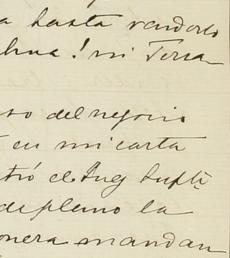 a hasta venderlo
! mi Terra
so del negocio
en mi carta
tró el Juez Supte
de pleno la
onera mandan